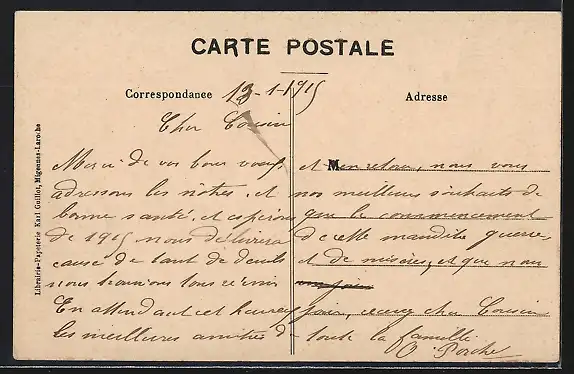 CARTE POSTALE
Correspondance 13-1-1915
Adresse
Cher Cousin
Merci de vos bons voeux, et M en retour, nous vous
adressons les nôtres, et nos meilleurs souhaits de
bonne santé, et espérons que le commencement
de 1915 nous délivrera de cette maudite guerre
cause de tant de deuils et de misères, et que nous
nous trouvions tous réunis
En attendant cet heureux jour, recevez cher Cousin
les meilleures amitiés de toute la famille.
Librairie-Papeterie Karl Guillot, Migennes-Laroche